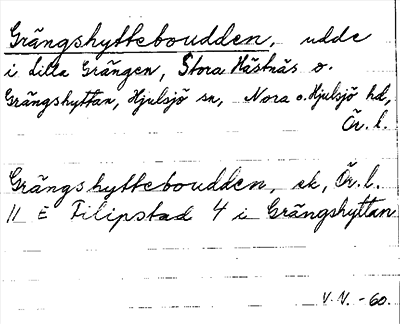 Grängshytteboudden, udde
i Lilla Grängen, Stora Hästnäs o.
Grängshyttan, Hjulsjö sn, Nora o. Hjulsjö hd,
Ör. l.
Grängshytteboudden, ek, Ör. l.
11 E Filipstad 4 i Grängshyttan
V. V. -60.